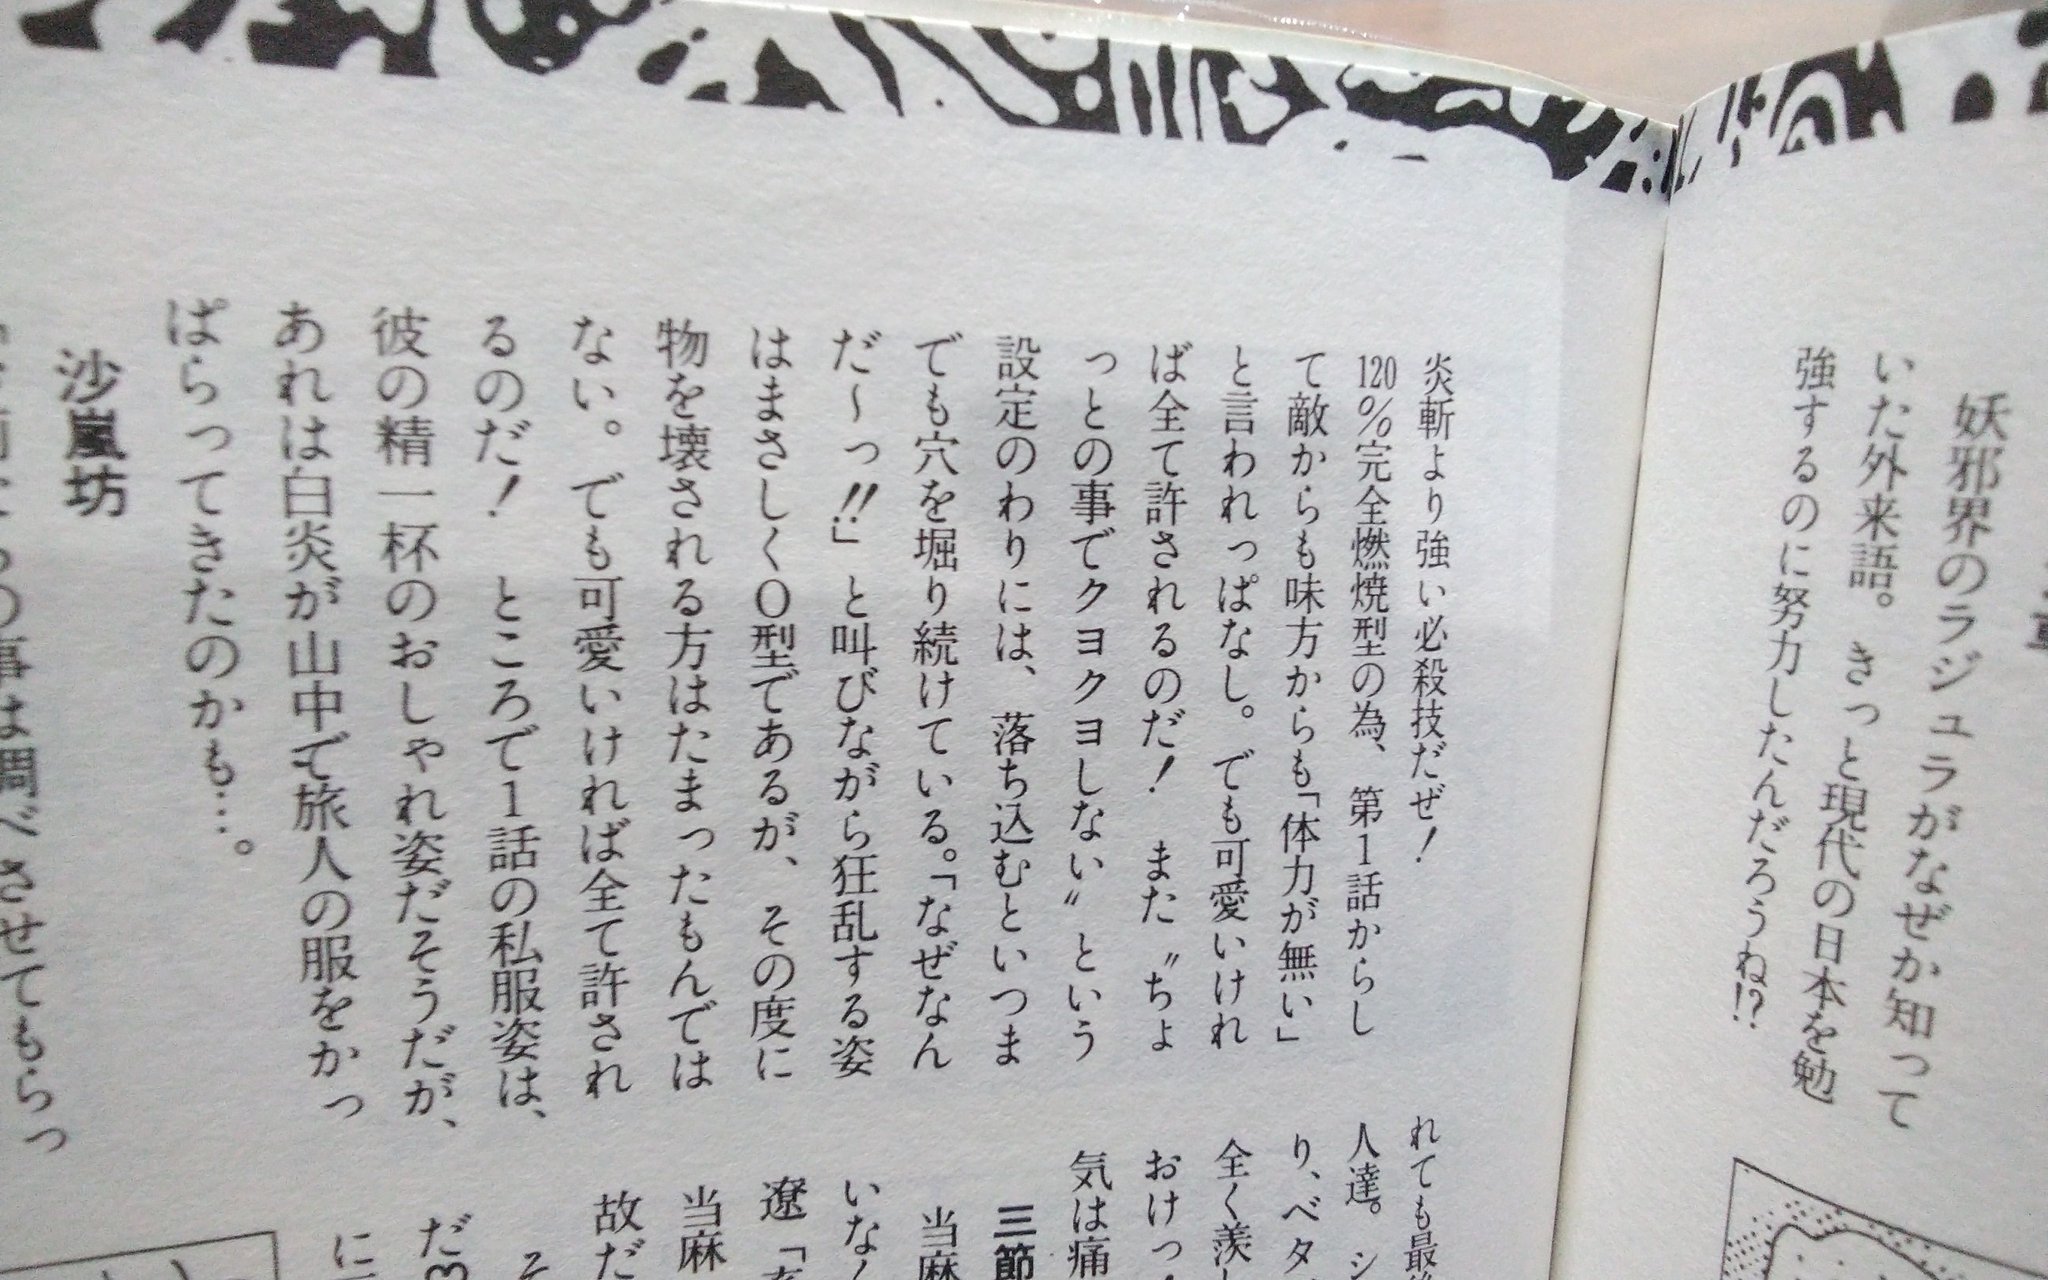 妖邪界のラジュラがなぜか知って
いた外来語。きっと現代の日本を勉
強するのに努力したんだろうね!?
炎斬より強い必殺技だぜ！
120％完全燃焼型の為、第1話からし
て敵からも味方からも「体力が無い」
と言われっぱなし。でも可愛いけれ
ば全て許されるのだ！　また〝ちょ
っとの事でクヨクヨしない〟という
設定のわりには、落ち込むといつま
でも穴を堀り続けている。「なぜなん
だ〜っ!!」と叫びながら狂乱する姿
はまさしくO型であるが、その度に
物を壊される方はたまったもんでは
ない。でも可愛いければ全て許され
るのだ！　ところで1話の私服姿は、
彼の精一杯のおしゃれ姿だそうだが、
あれは白炎が山中で旅人の服をかっ
ぱらってきたのかも…。
沙嵐坊
の事は調べさせてもらっ
れても最
人達。シ
り、ベタ
全く羨
おけっ
気は痛
三節
当麻
いなく
遼「
当麻
故だ
そ
だ3
に